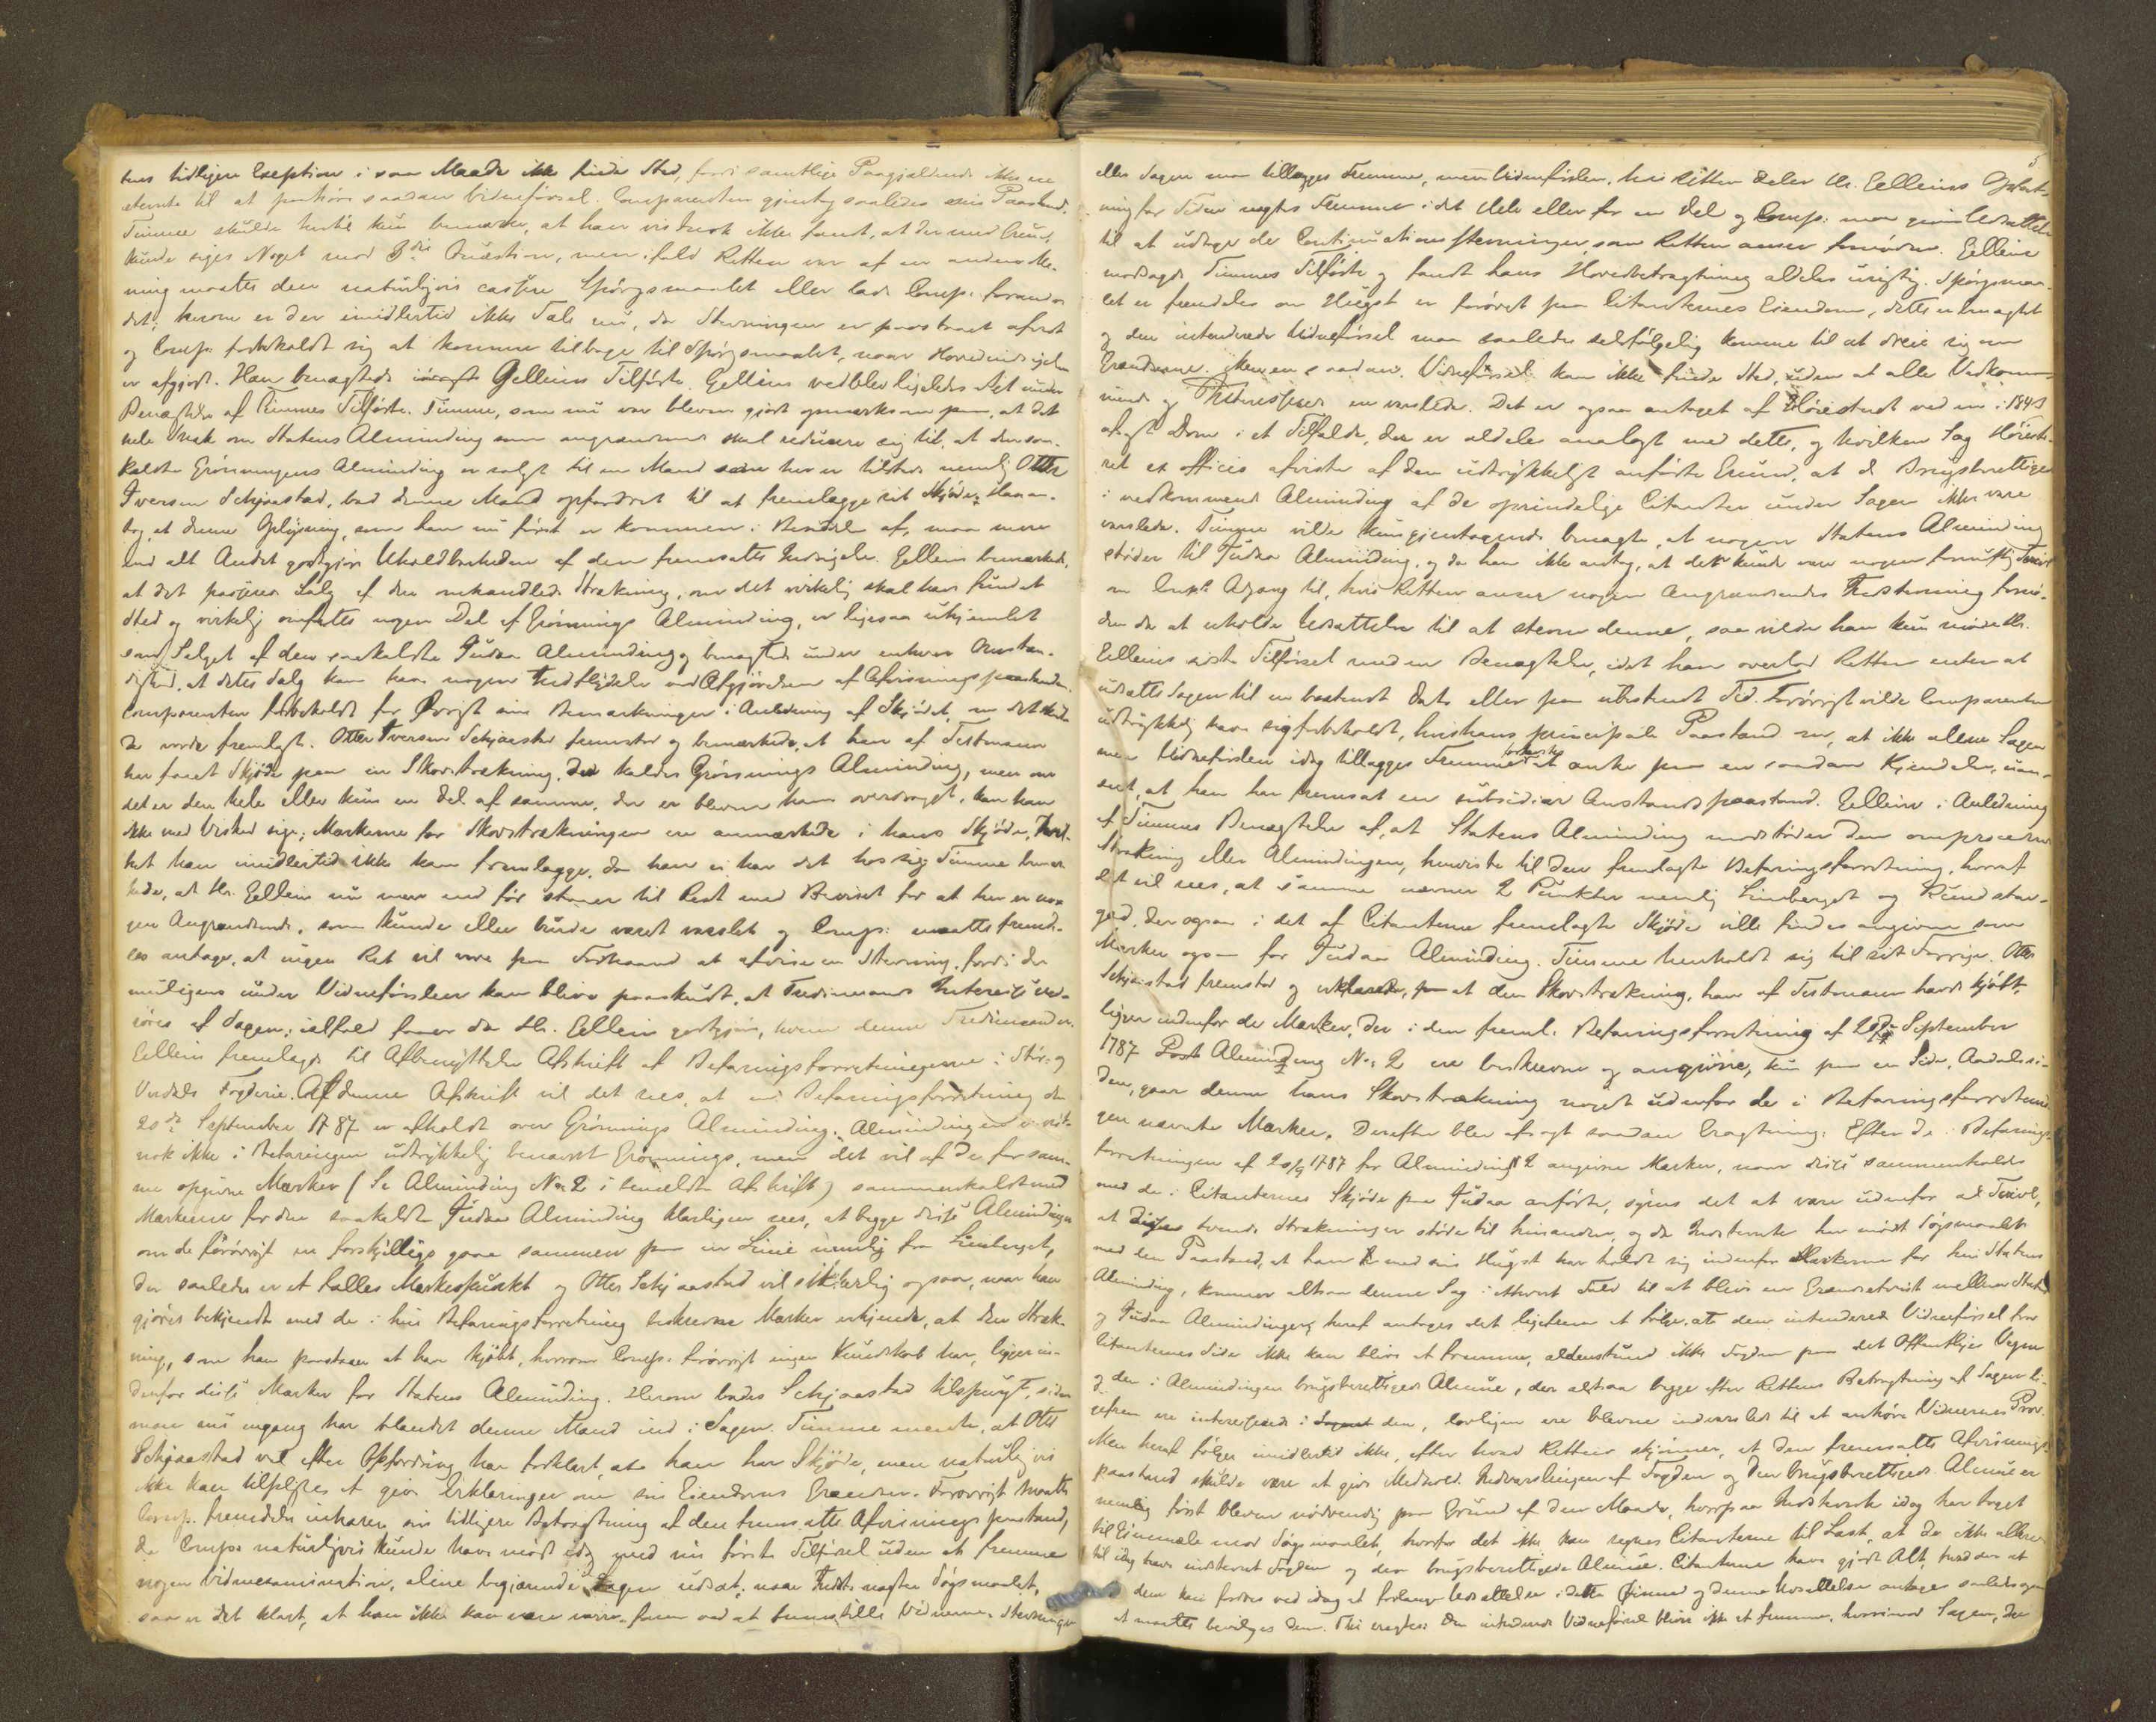 tens tidligere Exeption i saa Maade ikke finde Sted, fordi samtlige Paagjældende ikke ere
stevnte til at paahøre saadan Vidneførsel. Comparenten gjentog saaledes sin Paastand.
Timme skulde hertil kun bemærke, at han vistnok ikke fandt, at der med Grund
kunde siges Noget mod 3die Qvæstion, men ifald Retten var af en anden Me-
ning maatte den naturligvis cassere Spørgsmaalet eller lade Comp. forandre
det; herom er der imidlertid ikke Tale nu, da Stevningen er paastaaet afvist
og Comp. forbeholdt sig at komme tilbage til Spørgsmaalet, naar Hovedindsigelsen
er afgjort. Han benægtede iøvrigt Gelleins Tilførte. Gellein vedblev ligeledes Sit under
Benægtelse af Timmes Tilførte. Timme, som nu var bleven gjort opmærksom paa, at det
hele Snak om Statens Alminding som angrændende skal reducere sig til, at den saa-
kaldte Grønningens Alminding er solgt til en Mand som her er tilstede nemlig Otter
Iversen Schjaastad, bad denne Mand opfordret til at fremlægge sit Skjøde. Han an-
tog, at denne Oplysning, som han nu først er kommen i Besiddelse af, maa mere
end alt Andet godtgjøre Uholdbarheden af den fremsatte Indsigelse. Gellein bemærkede,
at det passerede Salg af den omhandlede Strækning, om det virkelig skal have fundet
Sted og virkelig omfattes nogen Del af Grønnings Alminding, er ligesaa uhjemlet
som Salget af den saakaldte Judaa Alminding og benægtede under enhver Omstæn-
dighed, at dette Salg kan have nogen Indflydelse ved Afgjørelsen af Afvisningspaastanden.
Comparenten forbeholdt for Øvrigt sine Bemærkninger i Anledning af Skjødet, om det skul-
de vorde fremlagt. Otter Iversen Schjaastad fremstod og bemærkede, at han af Testmann
har faaet Skjøde paa en Skovstrækning, der kaldes Grønnings Alminding, men om
det er den hele eller kun en Del af samme, der er bleven ham overdraget, kan han
ikke med Vished sige; Mærkerne for Skovstrækningen ere anmærkede i hans Skjøde, hvil-
ket han imidlertid ikke kan fremlægge, da han ei har det hos sig. Timme bemær-
kede, at Hr. Gellein nu mere end før staaer til Rest med Beviset for at her er no-
gen Angrændende, som kunde eller burde været varslet og Comp. maatte fremde-
les antage, at ingen Ret vil være paa Forhaand at afvise en Stevning, fordi der
muligens under Vidneførslen kan blive paaskudt, at Tredimands Interesse be-
røres af Sagen; ialfald faaer da Hr. Gellein godtgjøre, hvem denne Tredimand er.
Gellein fremlagde til Afbenyttelse Afskrift af Befaringsforretningerne i Stør- og
Værdals Fogderie. Af denne Afskrift vil det sees, at en Befaringsforretning den
20de September 1787 er afholdt over Grønnings Alminding. Almindingen er vist-
nok ikke i Befaringen udtrykkelig benævnt Grønnings, men det vil af de for sam-
me opgivne Mærker (Se Alminding No 2 i bemeldte Afskrift) sammenholdt med
Mærkerne for den saakaldte Judaa Alminding klarligen sees, at begge disse Almindinger
om de forøvrigt ere forskjellige gaae sammen paa en Linie nemlig fra Limberget,
der saaledes er et fælles Mærkespunkt og Otter Schjaastad vil sikkerlig ogsaa, naar han
gjøres bekjendt med de i hin Befaringsforretning beskrevne Mærker erkjende, at den Stræk-
ning, som han paastaaer at have kjøbt, hvorom Comp. forøvrigt ingen Kundskab har, ligger in-
denfor disse Mærker for Statens Alminding. Herom bades Schjaastad tilspurgt, siden
man nu engang har blandet denne Mand ind i Sagen. Timme mente, at Otter
Schjaastad vel efter Opfordring har forklaret, at han har Skjøde, men naturligvis
ikke kan tilpligtes at give Erklæringer om sin Eiendoms Grændser. Forøvrigt maatte
Comp. fremdeles inhærere sin tidligere Betragtning af den fremsatte Afvisningspaastand,
da Comp. naturligvis kunde have mødt idag med sin første Tilførsel uden at fremme
nogen Vidneexamination, alene begjærende Sagen udsat; naar Indst. nægter Søgsmaalet,
saa er det klart, at han ikke kan være værre faren ved at fremstille Vidnerne. Stevningen
5
eller Sagen maa tillægges Fremme, men Vidneførslen, hvis Retten deler Hr. Gelleins Opfat-
ning før Tiden nægtes Fremme i det Hele eller for en Del og Comp. maa gives Udsættelse
til at udtage de Continuationsstevninger, som Retten anser fornøden. Gellein
modsagde Timmes Tilførte og fandt hans Hovedbetragtning aldeles urigtig. Spørgsmaa-
let er fremdeles om Hugst er forøvet paa Citanternes Eiendom, dette er benægtet
og den intenderede Vidneførsel maa saaledes selvfølgelig komme til at dreie sig om
Grændserne. Men en saadan Vidneførsel kan ikke finde Sted, uden at alle Vedkom-
mende og Interesserede ere varslede. Det er ogsaa antaget af Høiesteret ved en i 1843
afsagt Dom i et Tilfælde, der er aldeles analogt med dette, og hvilken Sag Høieste-
ret ex officio afviste af den udtrykkeligt anførte Grund, at de Brugsberettigede
i vedkommende Alminding af de oprindelige Citanter under Sagen ikke vare
varslede. Timme vilde kun gjentagende benægte, at nogen Statens Alminding
støder til Judaa Alminding, og da han ikke antog, at der kunde være nogen fornuftig Tvivl
om Comp. Adgang til, hvis Retten anser nogen Angrændendes Indstevning fornø-
den da at erholde Udsættelse til at stevne denne, saa vilde han kun møde Hr.
Gelleins sidste Tilførsel med en Benægtelse, idet han overlod Retten enten at
udsætte Sagen til en bestemt Dato eller paa ubestemt Tid. Forøvrigt vilde Comparenten
udtrykkelig have sig forbeholdt, hvis hans principale Paastand om, at ikke alene Sagen
men Vidneførslen idag tillægges Fremme forkastes at anke paa en saadan Kjendelse, uan-
seet, at han har fremsat en subsidiær Anstandspaastand. Gellein i Anledning
af Timmes Benægtelse af, at Statens Alminding modstøder den omprocederede
Strækning eller Almindingen, henviste til den fremlagte Befaringsforretning, hvoraf
det vil sees, at samme nævner 2 Punkter nemlig Limberget og
der ogsaa i det af Citanterne fremlagte Skjøde ville findes angivne som
Mærker ogsaa for Judaa Alminding. Timme henholdt sig til sit Forrige. Otter
Schjaastad fremstod og erklærede, at den Skovstrækning, han af Testmann havde kjøbt,
ligger indenfor de Mærker, der i den freml. Befaringsforretning af 20de September
1787 Post Alminding No 2 ere beskrevne og angivne, kun paa en Side, Aadalssi-
den, gaar denne hans Skovstrækning noget udenfor de i Befaringsforretnin-
gen nævnte Mærker. Derefter blev afsagt saadan Eragtning: Efter de i Befarings-
forretningen af 20/9 1787 for Alminding 2 angivne Mærker, naar disse sammenholdes
med de i Citanternes Skjøde paa Judaa anførte, synes det at være udenfor al Tvivl,
at disse tvende Strækninger støde til hinanden, og da Indstevnte har mødt Søgsmaalet
med den Paastand, at han med sin Hugst har holdt sig indenfor Mærkerne for hin Statens
Alminding, kommer altsaa denne Sag i ethvert Fald til at blive en Grændsetvist mellem Statens
og Judaa Almindinger; heraf antages det ligefrem at følge, at den intenderede Vidneførsel fra
Citanternes Side ikke kan blive at fremme, aldenstund ikke Fogden paa det Offentliges Vegne
og den i Almindingen brugsberettigede Almue, der altsaa begge efter Rettens Betragtning af Sagen li-
gefrem ere interesserede i den, lovligen ere blevne indvarslede til at anhøre Vidnernes Prov.
Men heraf følger imidlertid ikke, efter hvad Retten skjønner, at den fremsatte Afvisnings-
paastand skulde være at give Medhold. Indvarslingen af Fogden og den brugsberettigede Almue er
nemlig først bleven nødvendig paa Grund af den Maade, hvorpaa Indstevnte idag har taget
til Gjenmæle mod Søgsmaalet, hvorfor det ikke kan regnes Citanterne til Last, at de ikke allerede
til idag have indstevnt Fogden og den brugsberettigede Almue. Citanterne have gjort Alt, hvad der af
dem kan fordres ved idag at forlange Udsættelse i dette Øiemed og denne Udsættelse antages saaledes ogsaa
at maatte bevilges dem. Thi eragtes: Den intenderede Vidneførsel bliver ikke at fremme, hvorimod Sagen, der